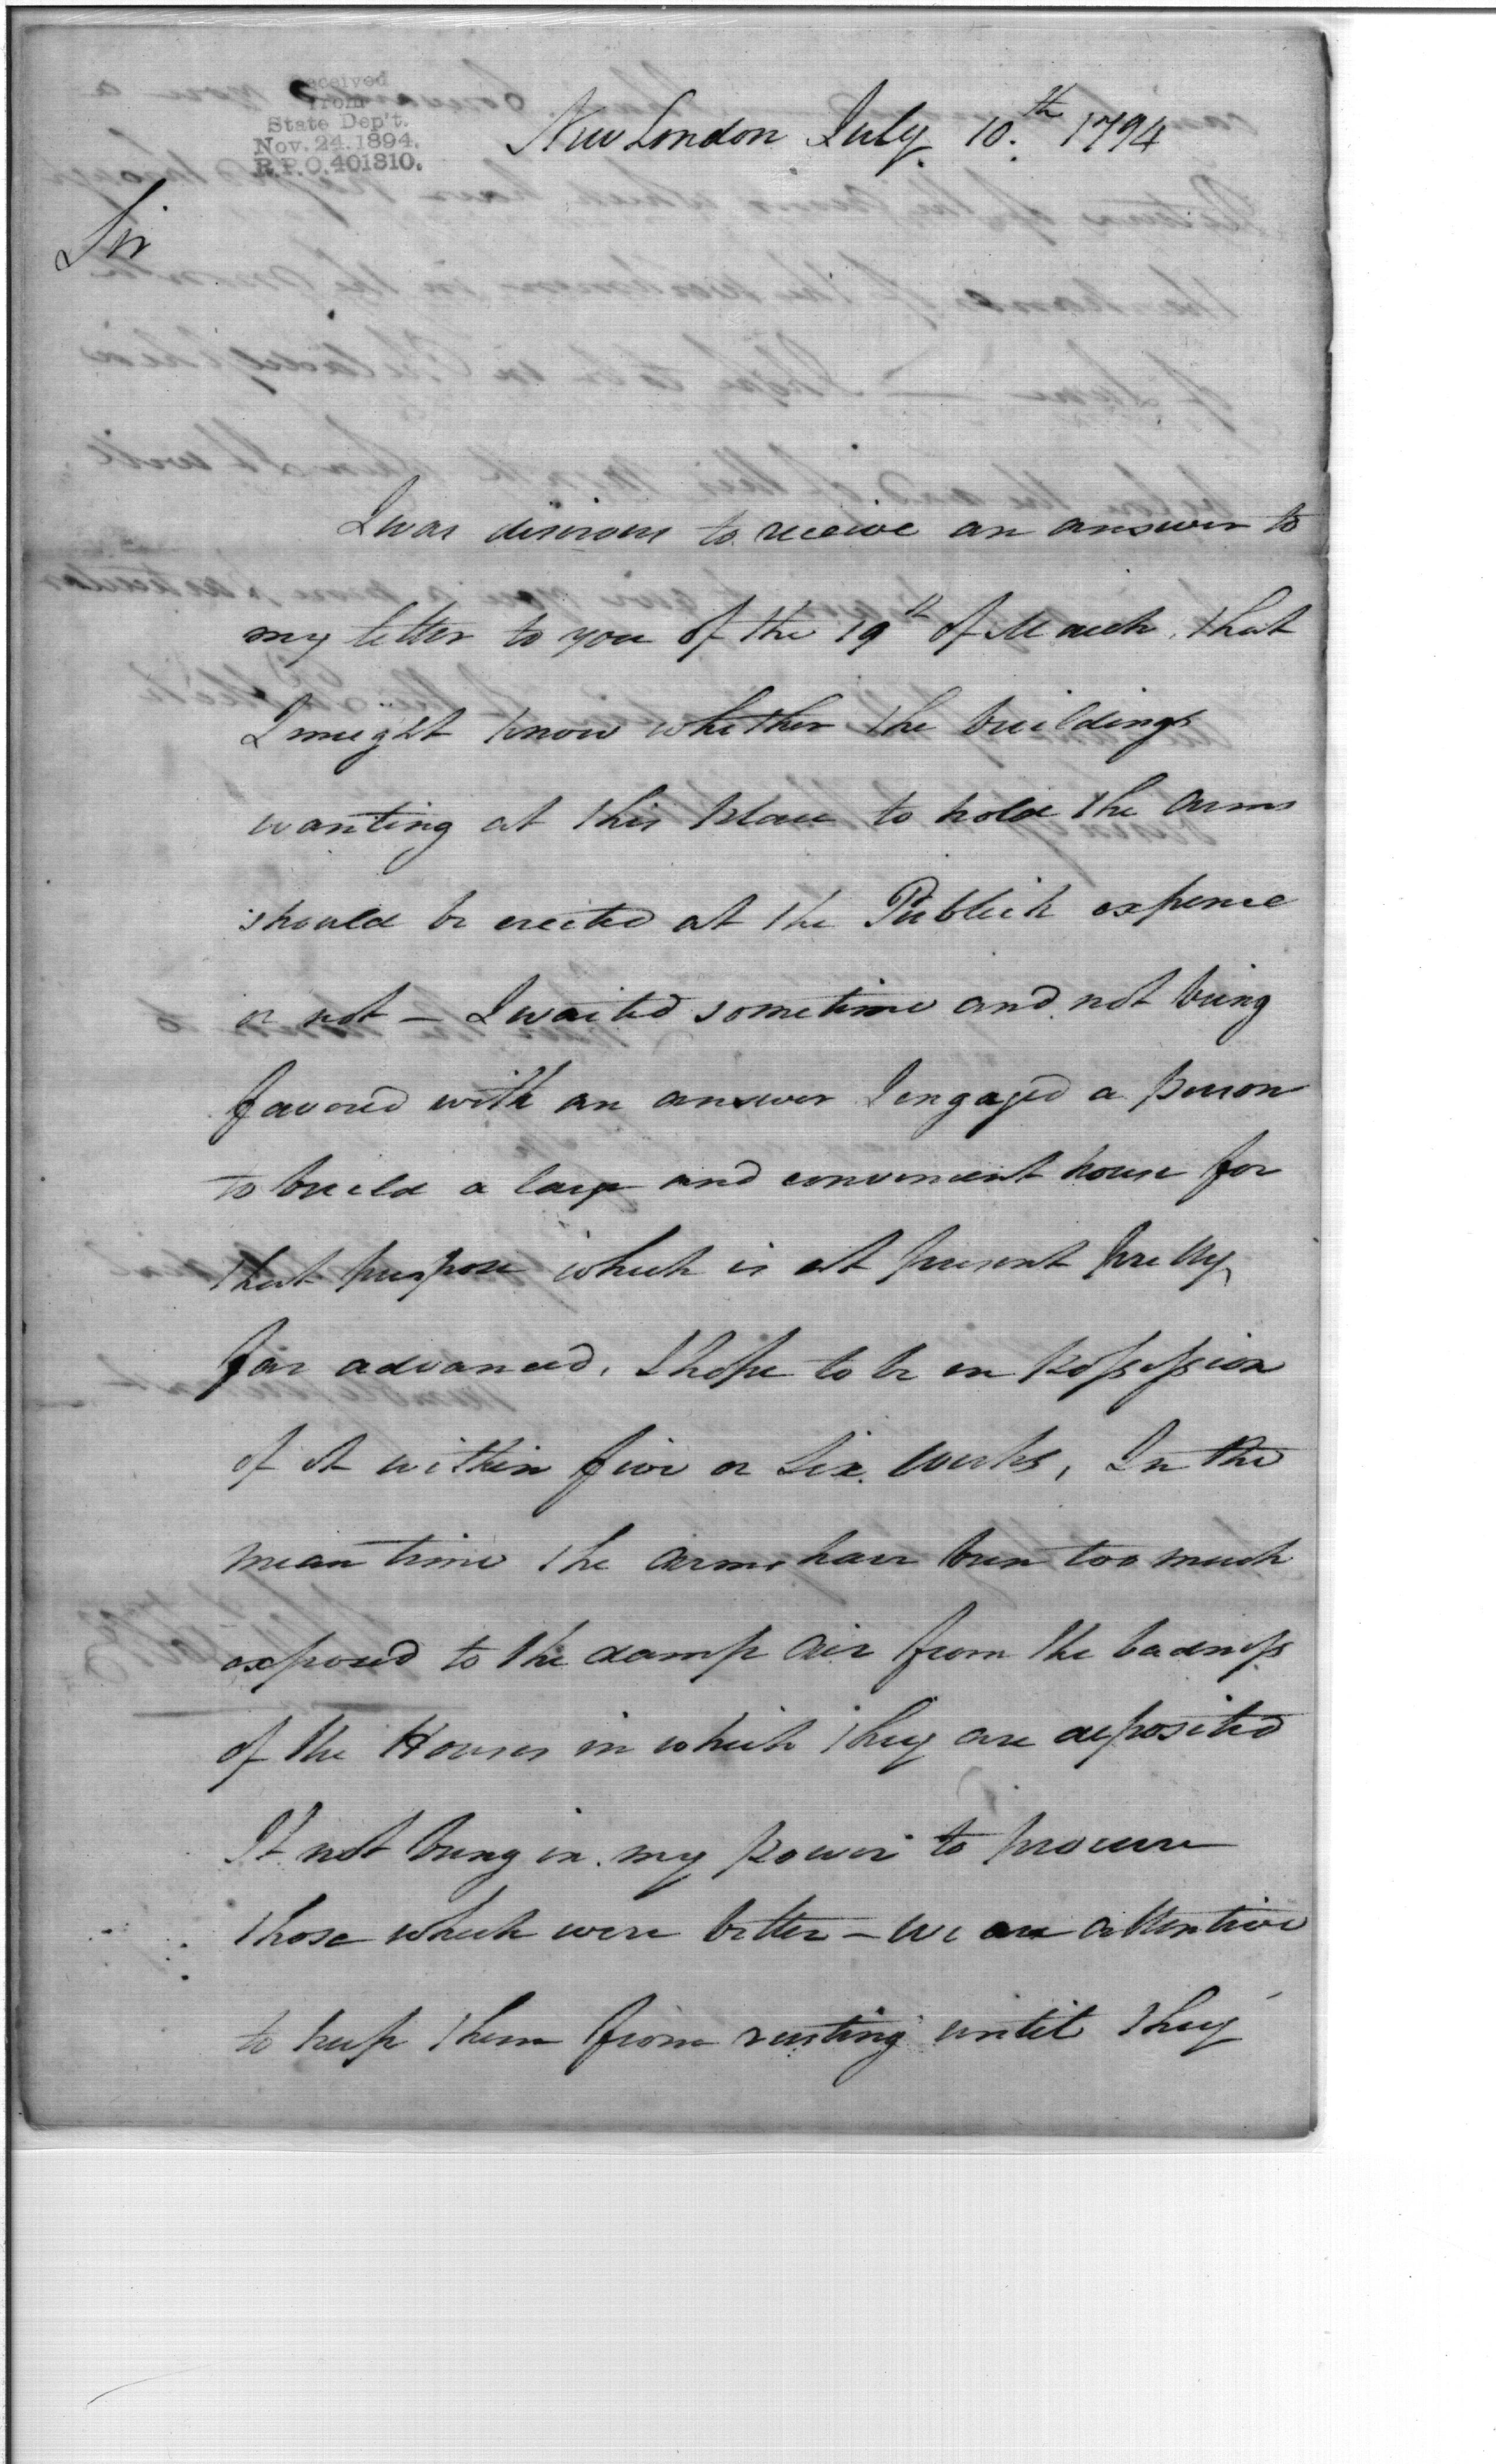 Received
from
State Dep't.
Nov. 24. 1894.
R.P.O. 401810.
New London July 10.th 1794
Sir
I was desirous to receive an answer to
my letter to you of the 19th of March, that
I might know whether the buildings
wanting at this place to hold the arms
should be erected at the Publick expence
or not - I waited sometime and not being
favored with an answer I engaged a person
to build a large and convenient house for
that purpose which is at present pretty
far advanced, I hope to be in possession
of it within five or Six weeks, In the
mean time the arms have been too much
exposed to the damp air from the badness
of the Houses in which they are deposited
It not being in my power to procure
those which were better - we are attentive
to keep them from rusting until they